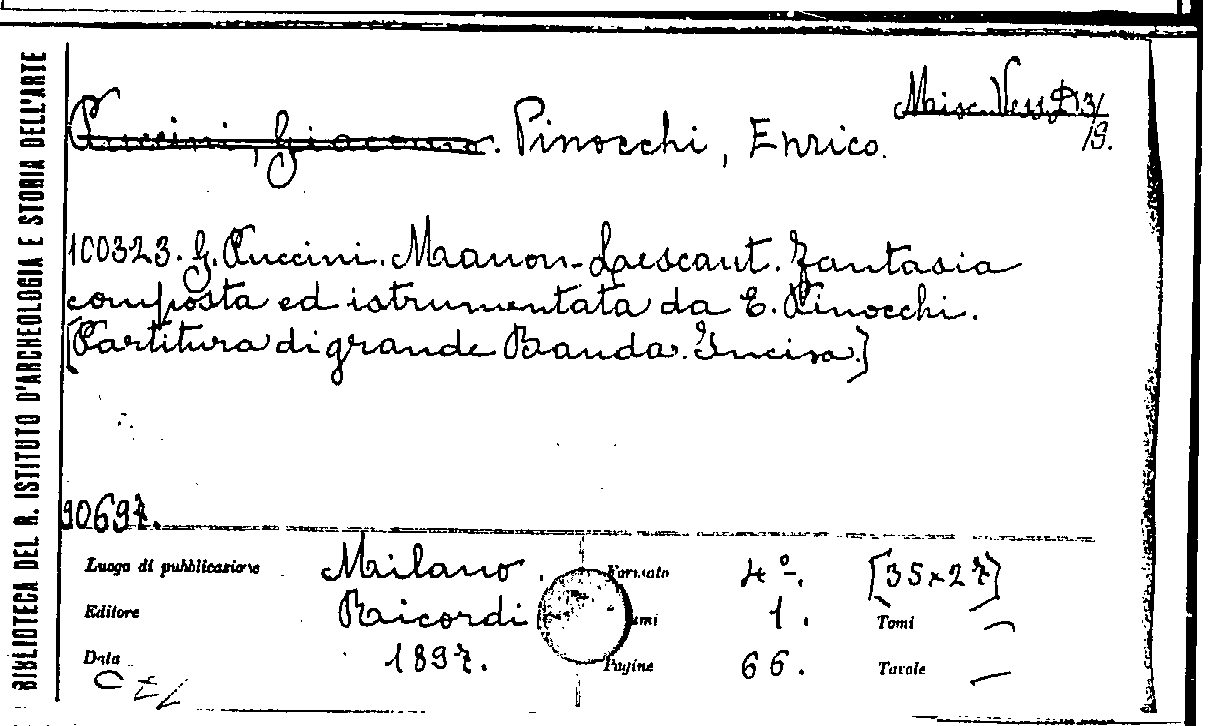 BIBLIOTECA DEL R. ISTITUTO D'ARCHEOLOGIA E STORIA DELL'ARTE
Misc. Vess. D 3/
9.
Puccini, Giacomo. Pinocchi, Enrico.
100323. G. Puccini. Manon-Lescaut. Fantasia
composta ed istrumentata da E. Pinocchi.
[Partitura di grande Banda. Incisa.]
90697.
Luogo di pubblicazione Milano. Formato 4º. [35x27]
Editore Ricordi 1. Tomi —
Data 1897. Pagine 66. Tavole —